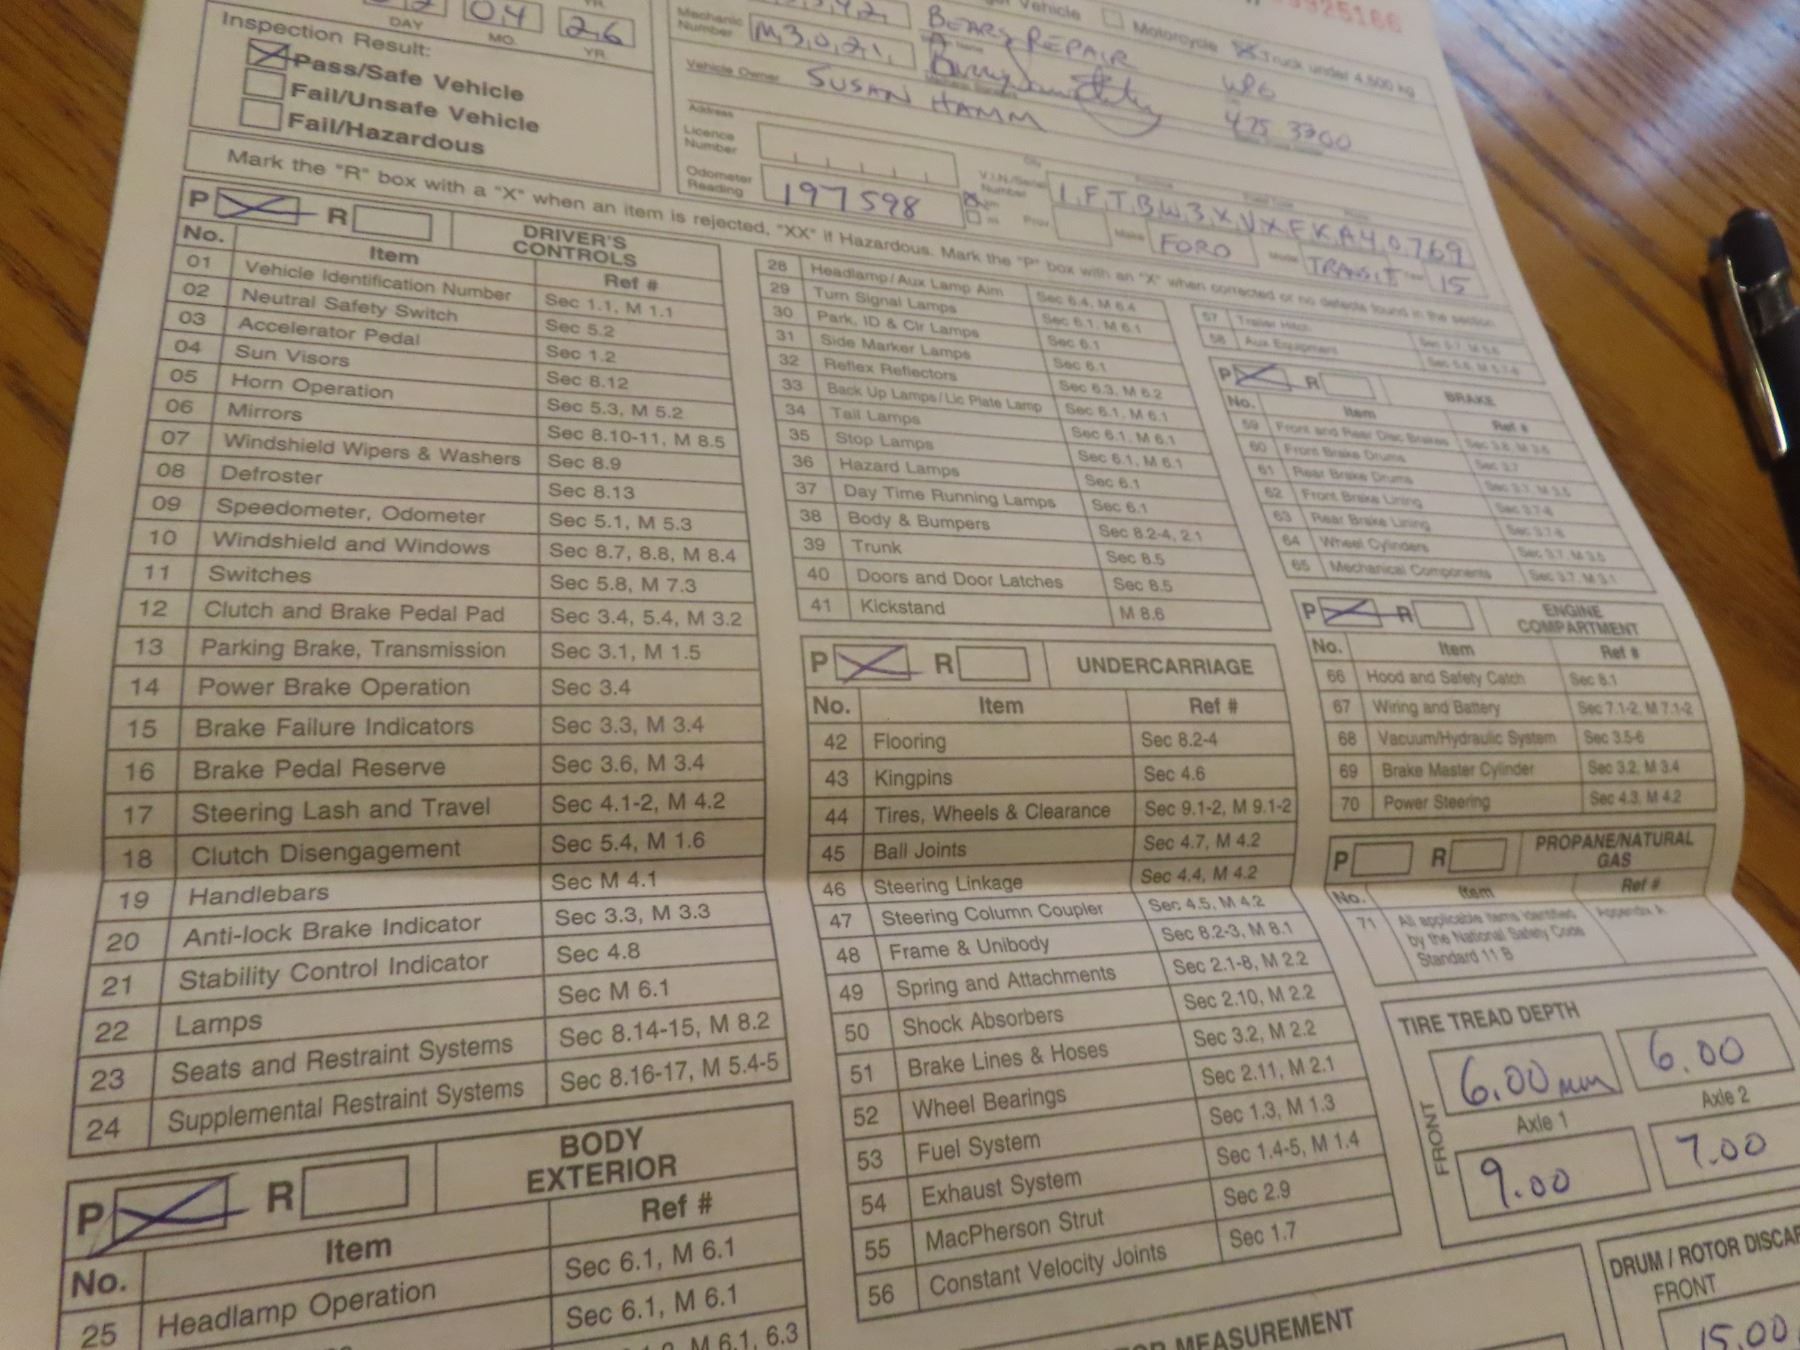 04 26
DAY MO. YR.
Inspection Result:
Pass/Safe Vehicle
Fail/Unsafe Vehicle
Fail/Hazardous
Vehicle
Motorcycle
Truck under 4,500 kg
BEARS REPAIR
WPG
Mechanic Number
M3021
475 3300
Vehicle Owner
SUSAN HAMM
Address
Licence Number
V.I.N./Serial Number
1FTBW3XVXFKA40769
Odometer Reading
197598
km
mi
Prov
Make
FORD
Model
TRANSIT
15
Mark the "R" box with a "X" when an item is rejected, "XX" if Hazardous. Mark the "P" box with an "X" when corrected or no defects found in the section
P R DRIVER'S CONTROLS
No. Item Ref #
01 Vehicle Identification Number Sec 1.1, M 1.1
02 Neutral Safety Switch Sec 5.2
03 Accelerator Pedal Sec 1.2
04 Sun Visors Sec 8.12
05 Horn Operation Sec 5.3, M 5.2
06 Mirrors Sec 8.10-11, M 8.5
07 Windshield Wipers & Washers Sec 8.9
08 Defroster Sec 8.13
09 Speedometer, Odometer Sec 5.1, M 5.3
10 Windshield and Windows Sec 8.7, 8.8, M 8.4
11 Switches Sec 5.8, M 7.3
12 Clutch and Brake Pedal Pad Sec 3.4, 5.4, M 3.2
13 Parking Brake, Transmission Sec 3.1, M 1.5
14 Power Brake Operation Sec 3.4
15 Brake Failure Indicators Sec 3.3, M 3.4
16 Brake Pedal Reserve Sec 3.6, M 3.4
17 Steering Lash and Travel Sec 4.1-2, M 4.2
18 Clutch Disengagement Sec 5.4, M 1.6
19 Handlebars Sec M 4.1
20 Anti-lock Brake Indicator Sec 3.3, M 3.3
21 Stability Control Indicator Sec 4.8
22 Lamps Sec M 6.1
23 Seats and Restraint Systems Sec 8.14-15, M 8.2
24 Supplemental Restraint Systems Sec 8.16-17, M 5.4-5
P R BODY EXTERIOR
No. Item Ref #
25 Headlamp Operation Sec 6.1, M 6.1
Sec 6.1, M 6.1
M 6.1, 6.3
28 Headlamp/Aux Lamp Aim Sec 6.4, M 6.4
29 Turn Signal Lamps Sec 6.1, M 6.1
30 Park, ID & Clr Lamps Sec 6.1
31 Side Marker Lamps Sec 6.1
32 Reflex Reflectors Sec 6.3, M 6.2
33 Back Up Lamps/Lic Plate Lamp Sec 6.1, M 6.1
34 Tail Lamps Sec 6.1, M 6.1
35 Stop Lamps Sec 6.1, M 6.1
36 Hazard Lamps Sec 6.1
37 Day Time Running Lamps Sec 6.1
38 Body & Bumpers Sec 8.2-4, 2.1
39 Trunk Sec 8.5
40 Doors and Door Latches Sec 8.5
41 Kickstand M 8.6
P R UNDERCARRIAGE
No. Item Ref #
42 Flooring Sec 8.2-4
43 Kingpins Sec 4.6
44 Tires, Wheels & Clearance Sec 9.1-2, M 9.1-2
45 Ball Joints Sec 4.7, M 4.2
46 Steering Linkage Sec 4.4, M 4.2
47 Steering Column Coupler Sec 4.5, M 4.2
48 Frame & Unibody Sec 8.2-3, M 8.1
49 Spring and Attachments Sec 2.1-8, M 2.2
50 Shock Absorbers Sec 2.10, M 2.2
51 Brake Lines & Hoses Sec 3.2, M 2.2
52 Wheel Bearings Sec 2.11, M 2.1
53 Fuel System Sec 1.3, M 1.3
54 Exhaust System Sec 1.4-5, M 1.4
55 MacPherson Strut Sec 2.9
56 Constant Velocity Joints Sec 1.7
MEASUREMENT
57 Trailer Hitch
58 Aux Equipment
P R BRAKE
No. Item Ref #
59 Front and Rear Disc Brakes
60 Front Brake Drums Sec 3.7
61 Rear Brake Drums
62 Front Brake Lining Sec 3.7-8
63 Rear Brake Lining Sec 3.7-8
64 Wheel Cylinders
65 Mechanical Components
P R ENGINE COMPARTMENT
No. Item Ref #
66 Hood and Safety Catch Sec 8.1
67 Wiring and Battery Sec 7.1-2, M 7.1-2
68 Vacuum/Hydraulic System Sec 3.5-6
69 Brake Master Cylinder Sec 3.2, M 3.4
70 Power Steering Sec 4.3, M 4.2
P R PROPANE/NATURAL GAS
No. Item Ref #
71 All applicable items identified Appendix A
by the National Safety Code
Standard 11 B
TIRE TREAD DEPTH
6.00mm 6.00
FRONT Axle 1 Axle 2
9.00 7.00
DRUM / ROTOR
FRONT
15.00